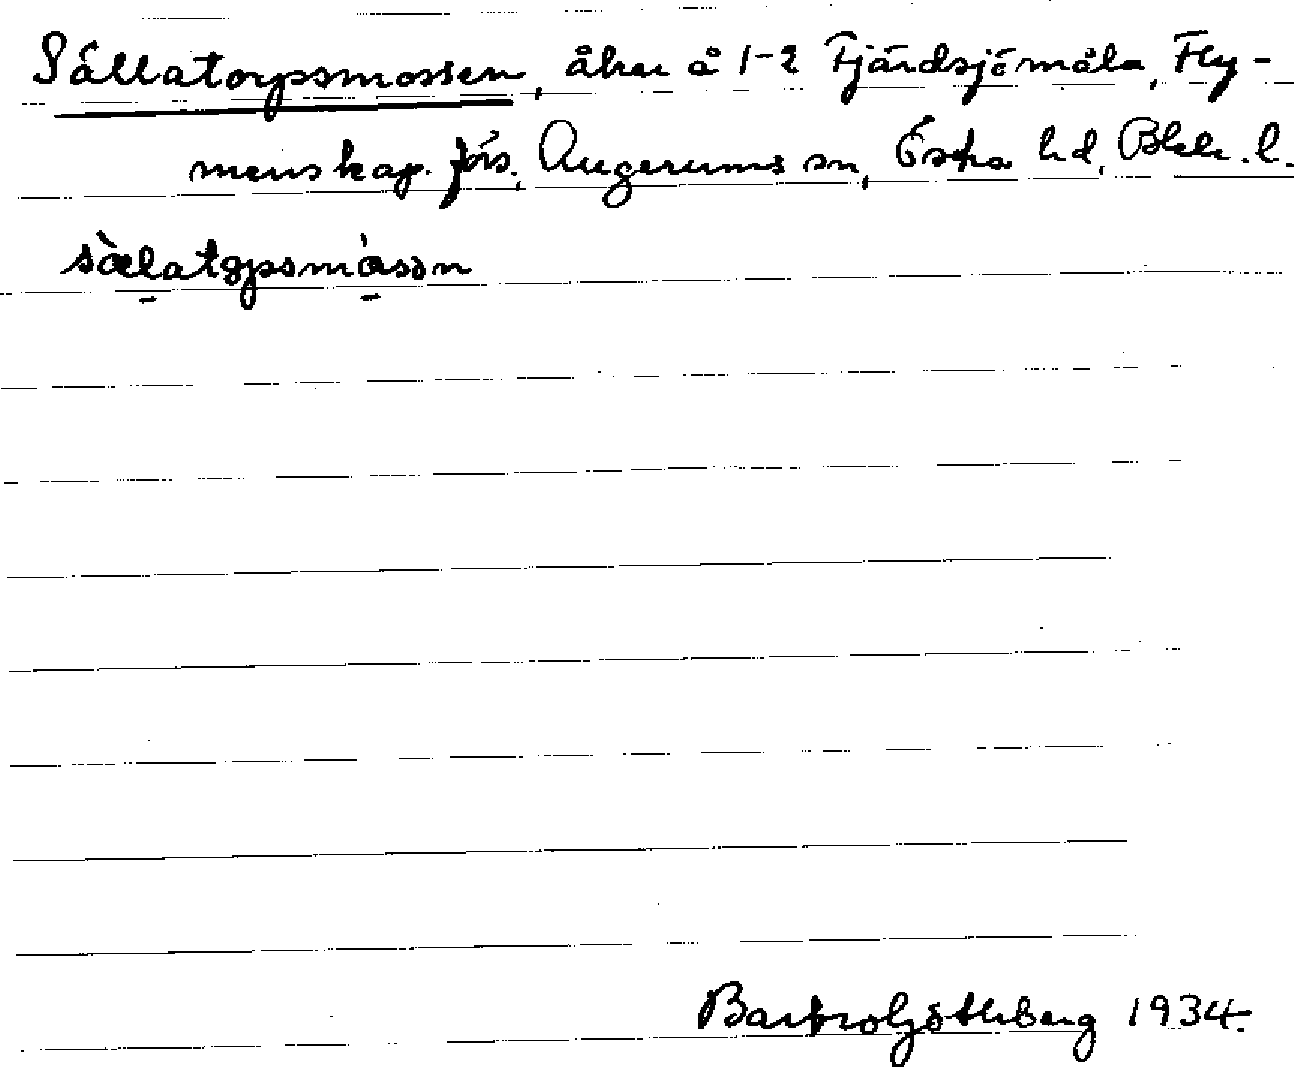 Sällatorpsmossen, åker å 1-2 Fjärdsjömåla, Fly-
menskap. förs., Augerums sn, Östra hd, Blek. l.
sælatɔpsmåssn
1934.